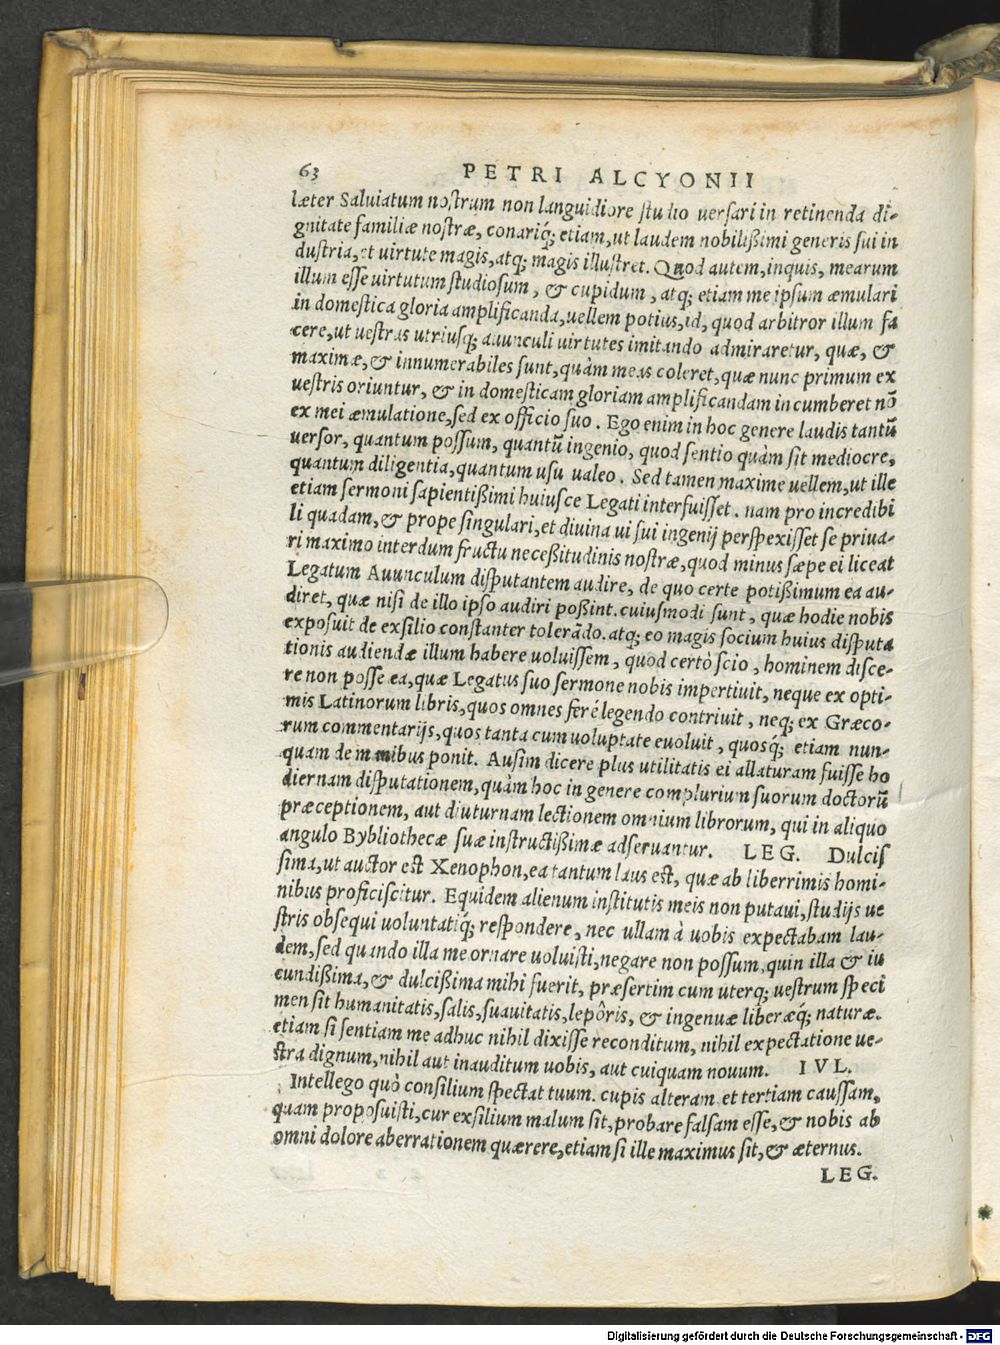 63 PETRI ALCYONII
læter Saluiatum nostrum non languidiore studio uersari in retinenda di-
gnitate familiæ nostræ, conariq; etiam, ut laudem nobilißimi generis sui in
dustria, et uirtute magis, atq; magis illustret. Quod autem, inquis, mearum
illum esse uirtutum studiosum, & cupidum, atq; etiam me ipsum æmulari
in domestica gloria amplificanda, uellem potius, id, quod arbitror illum fa
cere, ut uestras utriusq; auunculi uirtutes imitando admiraretur, quæ, &
maximæ, & innumerabiles sunt, quàm meas coleret, quæ nunc primum ex
uestris oriuntur, & in domesticam gloriam amplificandam incumberet nõ
ex mei æmulatione, sed ex officio suo. Ego enim in hoc genere laudis tantũ
uersor, quantum possum, quantũ ingenio, quod sentio quàm sit mediocre,
quantum diligentia, quantum usu ualeo. Sed tamen maxime uellem, ut ille
etiam sermoni sapientißimi huiusce Legati interfuisset. nam pro incredibi
li quadam, & prope singulari, et diuina ui sui ingenij perspexisset se priua-
ri maximo interdum fructu neceßitudinis nostræ, quod minus sæpe ei liceat
Legatum Auunculum disputantem audire, de quo certe potißimum ea au-
diret, quæ nisi de illo ipso audiri poßint. cuiusmodi sunt, quæ hodie nobis
exposuit de exsilio constanter tolerãdo. atq; eo magis socium huius disputa
tionis audiendæ illum habere uoluissem, quod certò scio, hominem disce-
re non posse ea, quæ Legatus suo sermone nobis impertiuit, neque ex opti-
mis Latinorum libris, quos omnes ferè legendo contriuit, neq; ex Græco-
rum commentarijs, quos tanta cum uoluptate euoluit, quosq; etiam nun-
quam de manibus ponit. Ausim dicere plus utilitatis ei allaturam fuisse ho
diernam disputationem, quàm hoc in genere complurium suorum doctorũ
præceptionem, aut diuturnam lectionem omnium librorum, qui in aliquo
angulo Bybliothecæ suæ instructißimæ adseruantur. LEG. Dulcis
sima, ut auctor est Xenophon, ea tantum laus est, quæ ab liberrimis homi-
nibus proficiscitur. Equidem alienum institutis meis non putaui, studijs ue
stris obsequi uoluntatiq; respondere, nec ullam à uobis expectabam lau-
dem, sed quando illa me ornare uoluisti, negare non possum, quin illa & iu
cundißima, & dulcißima mihi fuerit, præsertim cum uterq; uestrum speci
men sit humanitatis, salis, suauitatis, lepôris, & ingenuæ liberæq; naturæ.
etiam si sentiam me adhuc nihil dixisse reconditum, nihil expectatione ue-
stra dignum, nihil aut inauditum uobis, aut cuiquam nouum. IVL.
Intellego quò consilium spectat tuum. cupis alteram et tertiam caussam,
quam proposuisti, cur exsilium malum sit, probare falsam esse, & nobis ab
omni dolore aberrationem quærere, etiam si ille maximus sit, & æternus.
LEG.
Digitalisierung gefördert durch die Deutsche Forschungsgemeinschaft - DFG